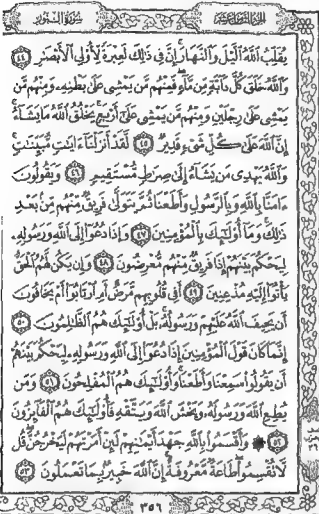 الجزء الثامن عشر
سورة النور
يُقَلِّبُ ٱللَّهُ ٱلَّيۡلَ وَٱلنَّهَارَۚ إِنَّ فِي ذَٰلِكَ لَعِبۡرَةٗ لِّأُوْلِي ٱلۡأَبۡصَٰرِ ٤٤
وَٱللَّهُ خَلَقَ كُلَّ دَآبَّةٖ مِّن مَّآءٖۖ فَمِنۡهُم مَّن يَمۡشِي عَلَىٰ بَطۡنِهِۦ وَمِنۡهُم مَّن
يَمۡشِي عَلَىٰ رِجۡلَيۡنِ وَمِنۡهُم مَّن يَمۡشِي عَلَىٰٓ أَرۡبَعٖۚ يَخۡلُقُ ٱللَّهُ مَا يَشَآءُۚ
إِنَّ ٱللَّهَ عَلَىٰ كُلِّ شَيۡءٖ قَدِيرٞ ٤٥ لَّقَدۡ أَنزَلۡنَآ ءَايَٰتٖ مُّبَيِّنَٰتٖۚ
وَٱللَّهُ يَهۡدِي مَن يَشَآءُ إِلَىٰ صِرَٰطٖ مُّسۡتَقِيمٖ ٤٦ وَيَقُولُونَ
ءَامَنَّا بِٱللَّهِ وَبِٱلرَّسُولِ وَأَطَعۡنَا ثُمَّ يَتَوَلَّىٰ فَرِيقٞ مِّنۡهُم مِّنۢ بَعۡدِ
ذَٰلِكَۚ وَمَآ أُوْلَٰٓئِكَ بِٱلۡمُؤۡمِنِينَ ٤٧ وَإِذَا دُعُوٓاْ إِلَى ٱللَّهِ وَرَسُولِهِۦ
لِيَحۡكُمَ بَيۡنَهُمۡ إِذَا فَرِيقٞ مِّنۡهُم مُّعۡرِضُونَ ٤٨ وَإِن يَكُن لَّهُمُ ٱلۡحَقُّ
يَأۡتُوٓاْ إِلَيۡهِ مُذۡعِنِينَ ٤٩ أَفِي قُلُوبِهِم مَّرَضٌ أَمِ ٱرۡتَابُوٓاْ أَمۡ يَخَافُونَ
أَن يَحِيفَ ٱللَّهُ عَلَيۡهِمۡ وَرَسُولُهُۥۚ بَلۡ أُوْلَٰٓئِكَ هُمُ ٱلظَّٰلِمُونَ ٥٠
إِنَّمَا كَانَ قَوۡلَ ٱلۡمُؤۡمِنِينَ إِذَا دُعُوٓاْ إِلَى ٱللَّهِ وَرَسُولِهِۦ لِيَحۡكُمَ بَيۡنَهُمۡ
أَن يَقُولُواْ سَمِعۡنَا وَأَطَعۡنَاۚ وَأُوْلَٰٓئِكَ هُمُ ٱلۡمُفۡلِحُونَ ٥١ وَمَن
يُطِعِ ٱللَّهَ وَرَسُولَهُۥ وَيَخۡشَ ٱللَّهَ وَيَتَّقۡهِ فَأُوْلَٰٓئِكَ هُمُ ٱلۡفَآئِزُونَ
٥٢ ۞ وَأَقۡسَمُواْ بِٱللَّهِ جَهۡدَ أَيۡمَٰنِهِمۡ لَئِنۡ أَمَرۡتَهُمۡ لَيَخۡرُجُنَّۖ قُل
لَّا تُقۡسِمُواْۖ طَاعَةٞ مَّعۡرُوفَةٌۚ إِنَّ ٱللَّهَ خَبِيرُۢ بِمَا تَعۡمَلُونَ ٥٣
٣٥٦